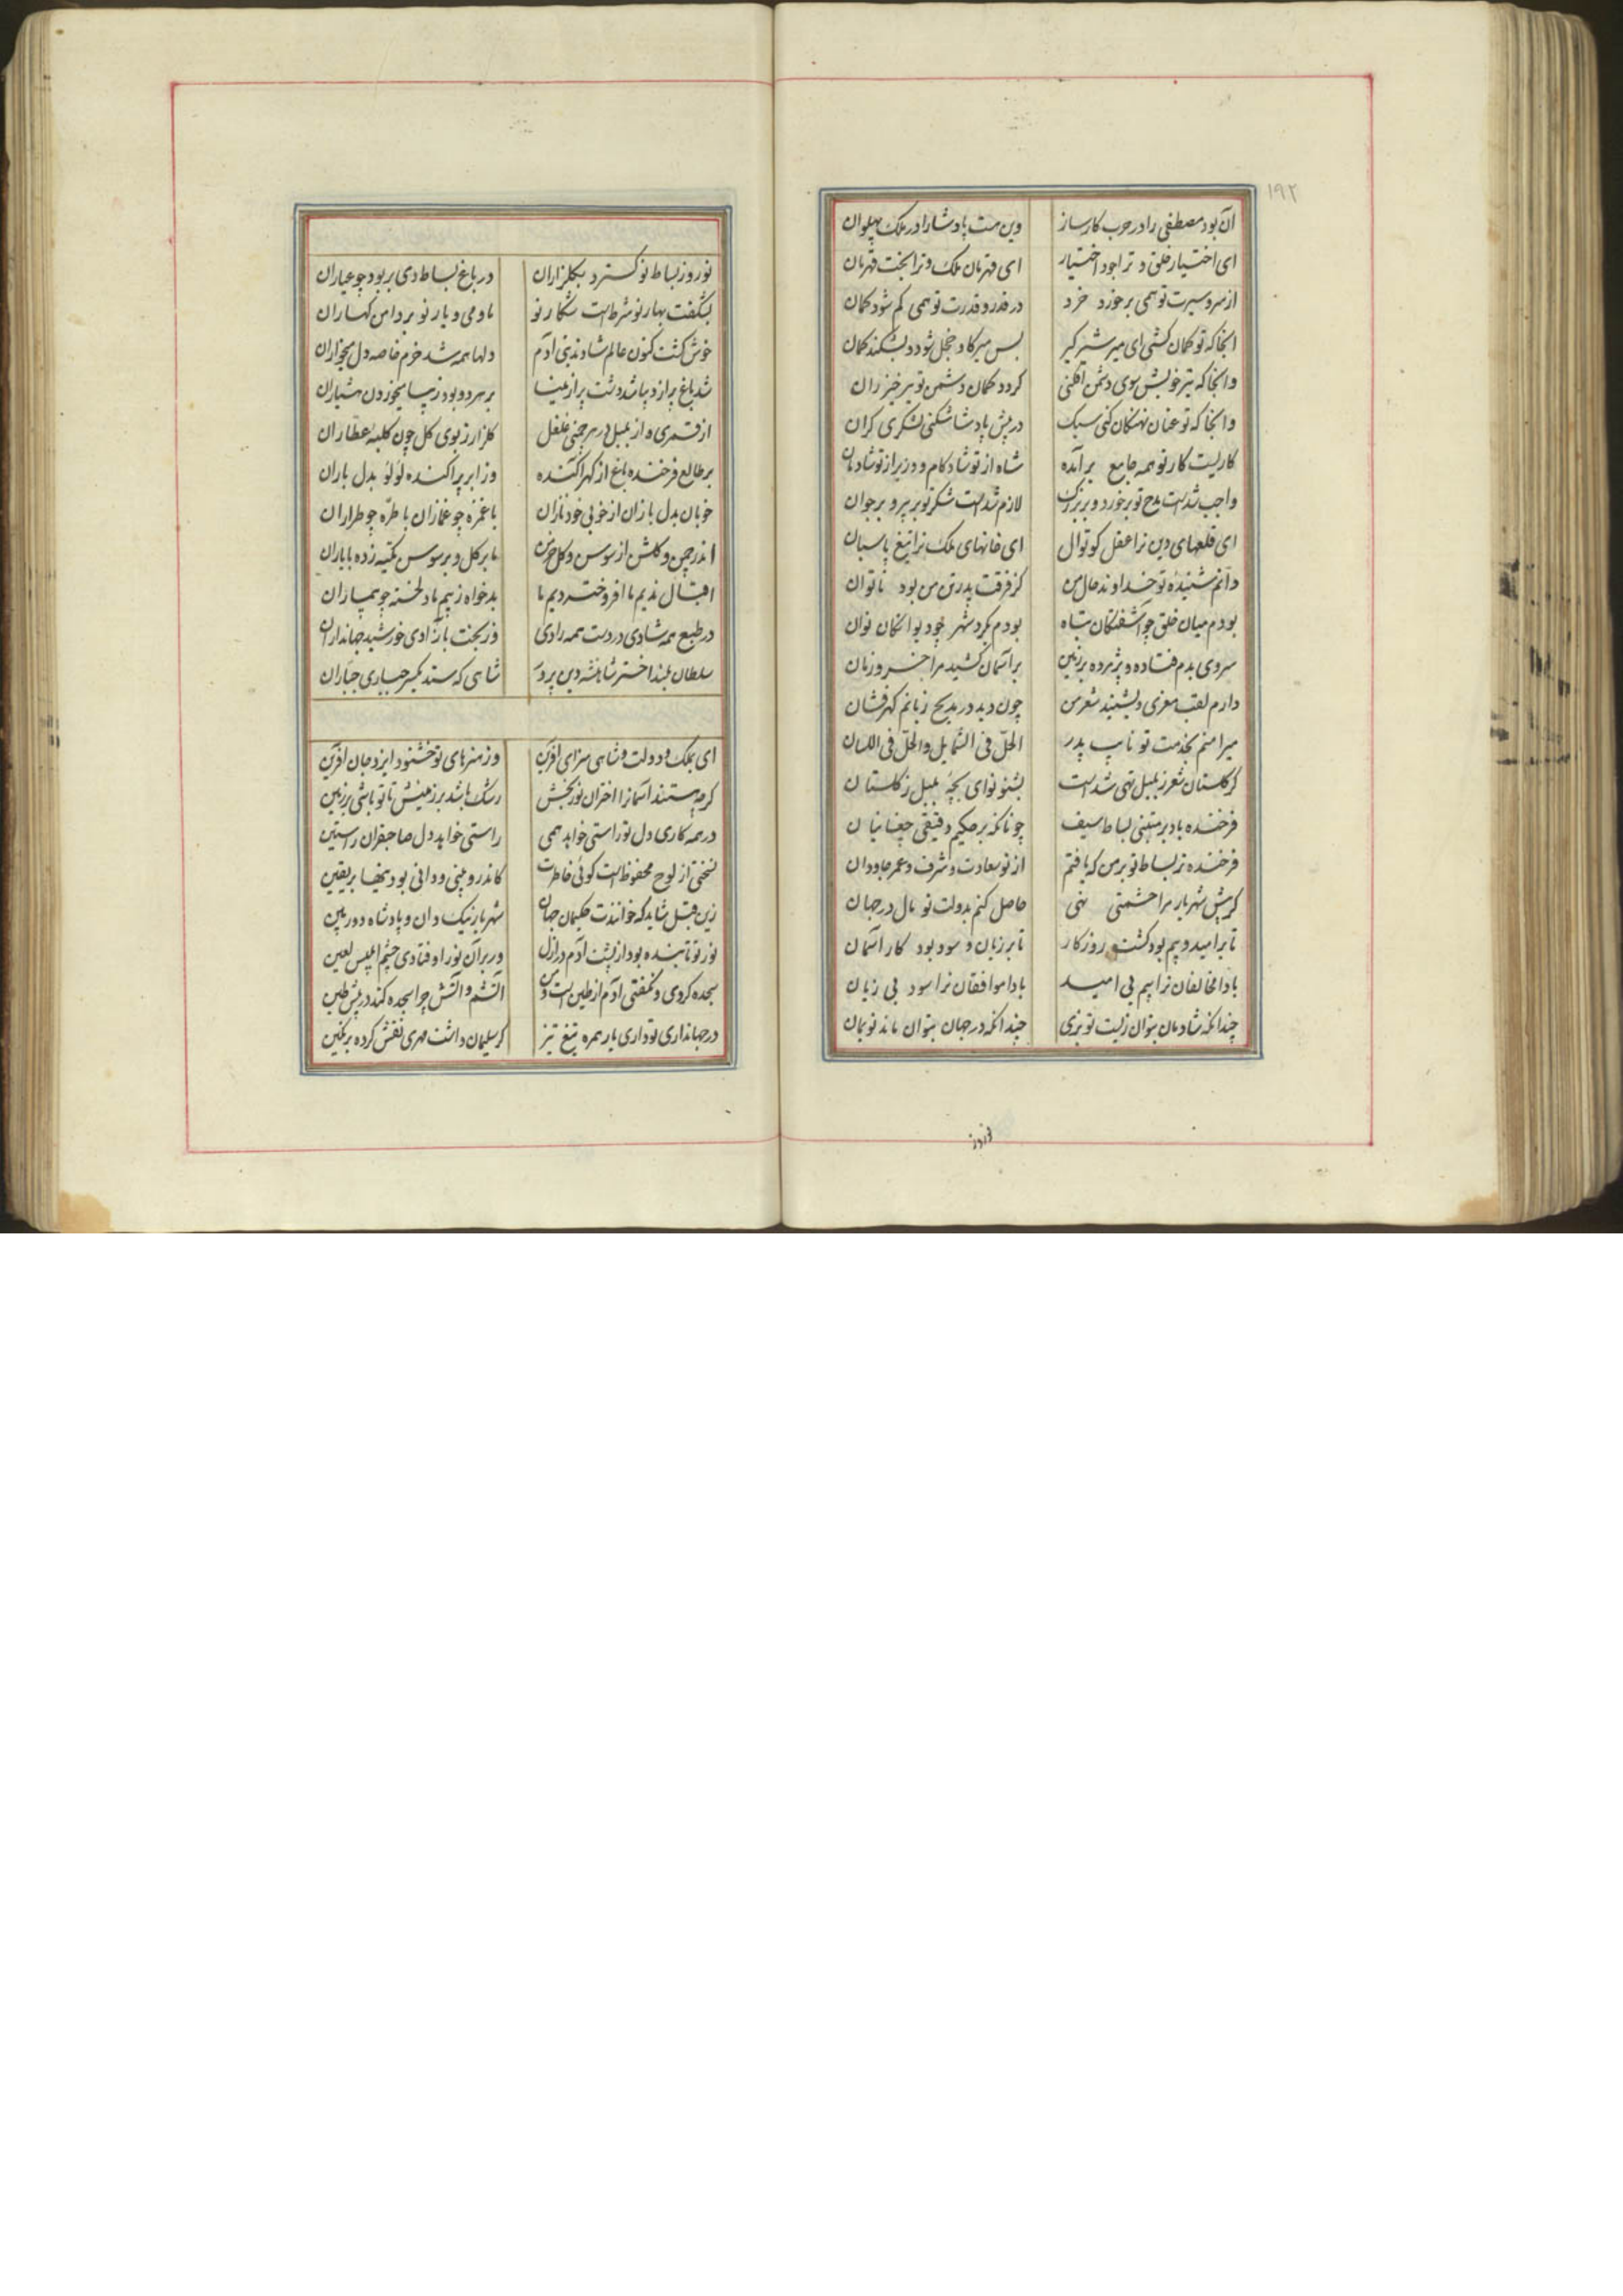 ۱۹۲
آن بود مصطفی را در حرب کارساز وین هست پادشا را در ملک پهلوان
ای اختیار خلق و ترا جود اختیار ای قهرمان ملک و ترا بخت قهرمان
از سر و سیرت تو همی برخورد خرد در قدر و قدرت تو همی کم شود کمان
انجا که تو کمان کشی ای میر شیر کیر بس میر کاو خجل شود و بشکند کمان
وانجا که تیر خویش سوی دشمن افکنی کردد کمان دشمن تو تیر خیزران
وانجا که تو عنان نهنکان کنی سبک در پیش پادشا شکنی لشکری کران
کاریست کار تو همه جامع برآمده شاه از تو شادکام و وزیر از تو شادمان
واجب شدست مدح تو بر خورد و بر بزرک لازم شدست شکر تو بر پیر و بر جوان
ای قلعهای دین ترا عقل کوتوال ای خانهای ملک ترا تیغ پاسبان
دانم شنیدهٔ تو خداوند حال من کز فرقت پدر تن من بود ناتوان
بودم میان خلق چو آشفتکان تباه بودم بکرد شهر چو دیوانکان نوان
سروی بدم فتاده و پژمرده بر زمین بر آسمان کشید مرا خسرو زمان
دارم لقب معزی و بشنید شعر من چون دید در مدیح زبانم کهرفشان
میرا منم بخدمت تو نایب پدر الحل فی الشمایل والحل فی اللسان
کر کلستان شعر ز بلبل تهی شدست بشنو نوای بچهٔ بلبل ز کلستان
فرخنده باد بر متنبی بساط سیف چونانکه بر حکیم دقیقی چغانیان
فرخنده تر بساط تو بر من که یافتم از تو سعادت و شرف و عمر جاودان
کر پیش شهریار مرا حشمتی نهی حاصل کنم بدولت تو مال در جهان
تا بر امید و بیم بود کشت روزکار تا بر زیان و سود بود کار آسمان
بادا مخالفان ترا بیم بی امید بادا موافقان ترا سود بی زیان
چندانکه شادمان بتوان زیست تو بزی چندانکه در جهان بتوان ماند تو بمان
نوروز
نوروز بساط نو کسترد بکلزاران در باغ بساط دی بربود چو عیاران
بشکفت بهار نو شرط است شکار نو با و می و یار نو بر دامن کهساران
خوش کشت کنون عالم شادند بنی آدم دلها همه شد خرم خاصه دل میخواران
شد باغ پر از دیبا شد دشت پر از مینا بر هر دو بود زیبا می خوردن هشیاران
از قمری و از بلبل در هر چمنی غلغل کلزار ز بوی کل چون کلبهٔ عطاران
بر طالع فرخنده باغ از کهر آکنده وز ابر پراکنده لولو بدل باران
خوبان بدل بازان از خوبی خود نازان با غمزه چو غمازان با طره چو طراران
اندر چمن و کلشن از سوسن و کل خرمن ما بر کل و بر سوسن تکیه زده با یاران
اقبال ندیم ما افروخته دیم ما بدخواه ز بیم ما دلخسته چو بیماران
در طبع همه شادی در دست همه رادی وز بخت بآزادی خورشید جهانداران
سلطان بلند اختر شاهنشه دین پرور شاهی که ستد یکسر جباری جباران
ای بملک و دولت و شاهی سزای آفرین وز هنرهای تو خشنود ایزد جان آفرین
کرچه هستند آسمانرا اختران نوربخش رشک باشد بر زمینش تا تو باشی بر زمین
در همه کاری دل تو راستی خواهد همی راستی خواهد دل صاحبقران راستین
نسختی از لوح محفوظ است کوئی خاطرت کاندرو بینی و دانی بودنیها بر یقین
زین قبل شاید که خوانندت حکیمان جهان شهریار نیک دان و پادشاه دور بین
نور تو تابنده بود از پشت آدم در ازل ور بر آن نور اوفتادی چشم ابلیس لعین
سجده کردی و نکفتی آدم از طین است و من آتشم و آتش چرا سجده کند در پیش طین
در جهانداری تو داری یار همره تیغ تیز کر سلیمان داشت مهری نقش کرده بر نکین